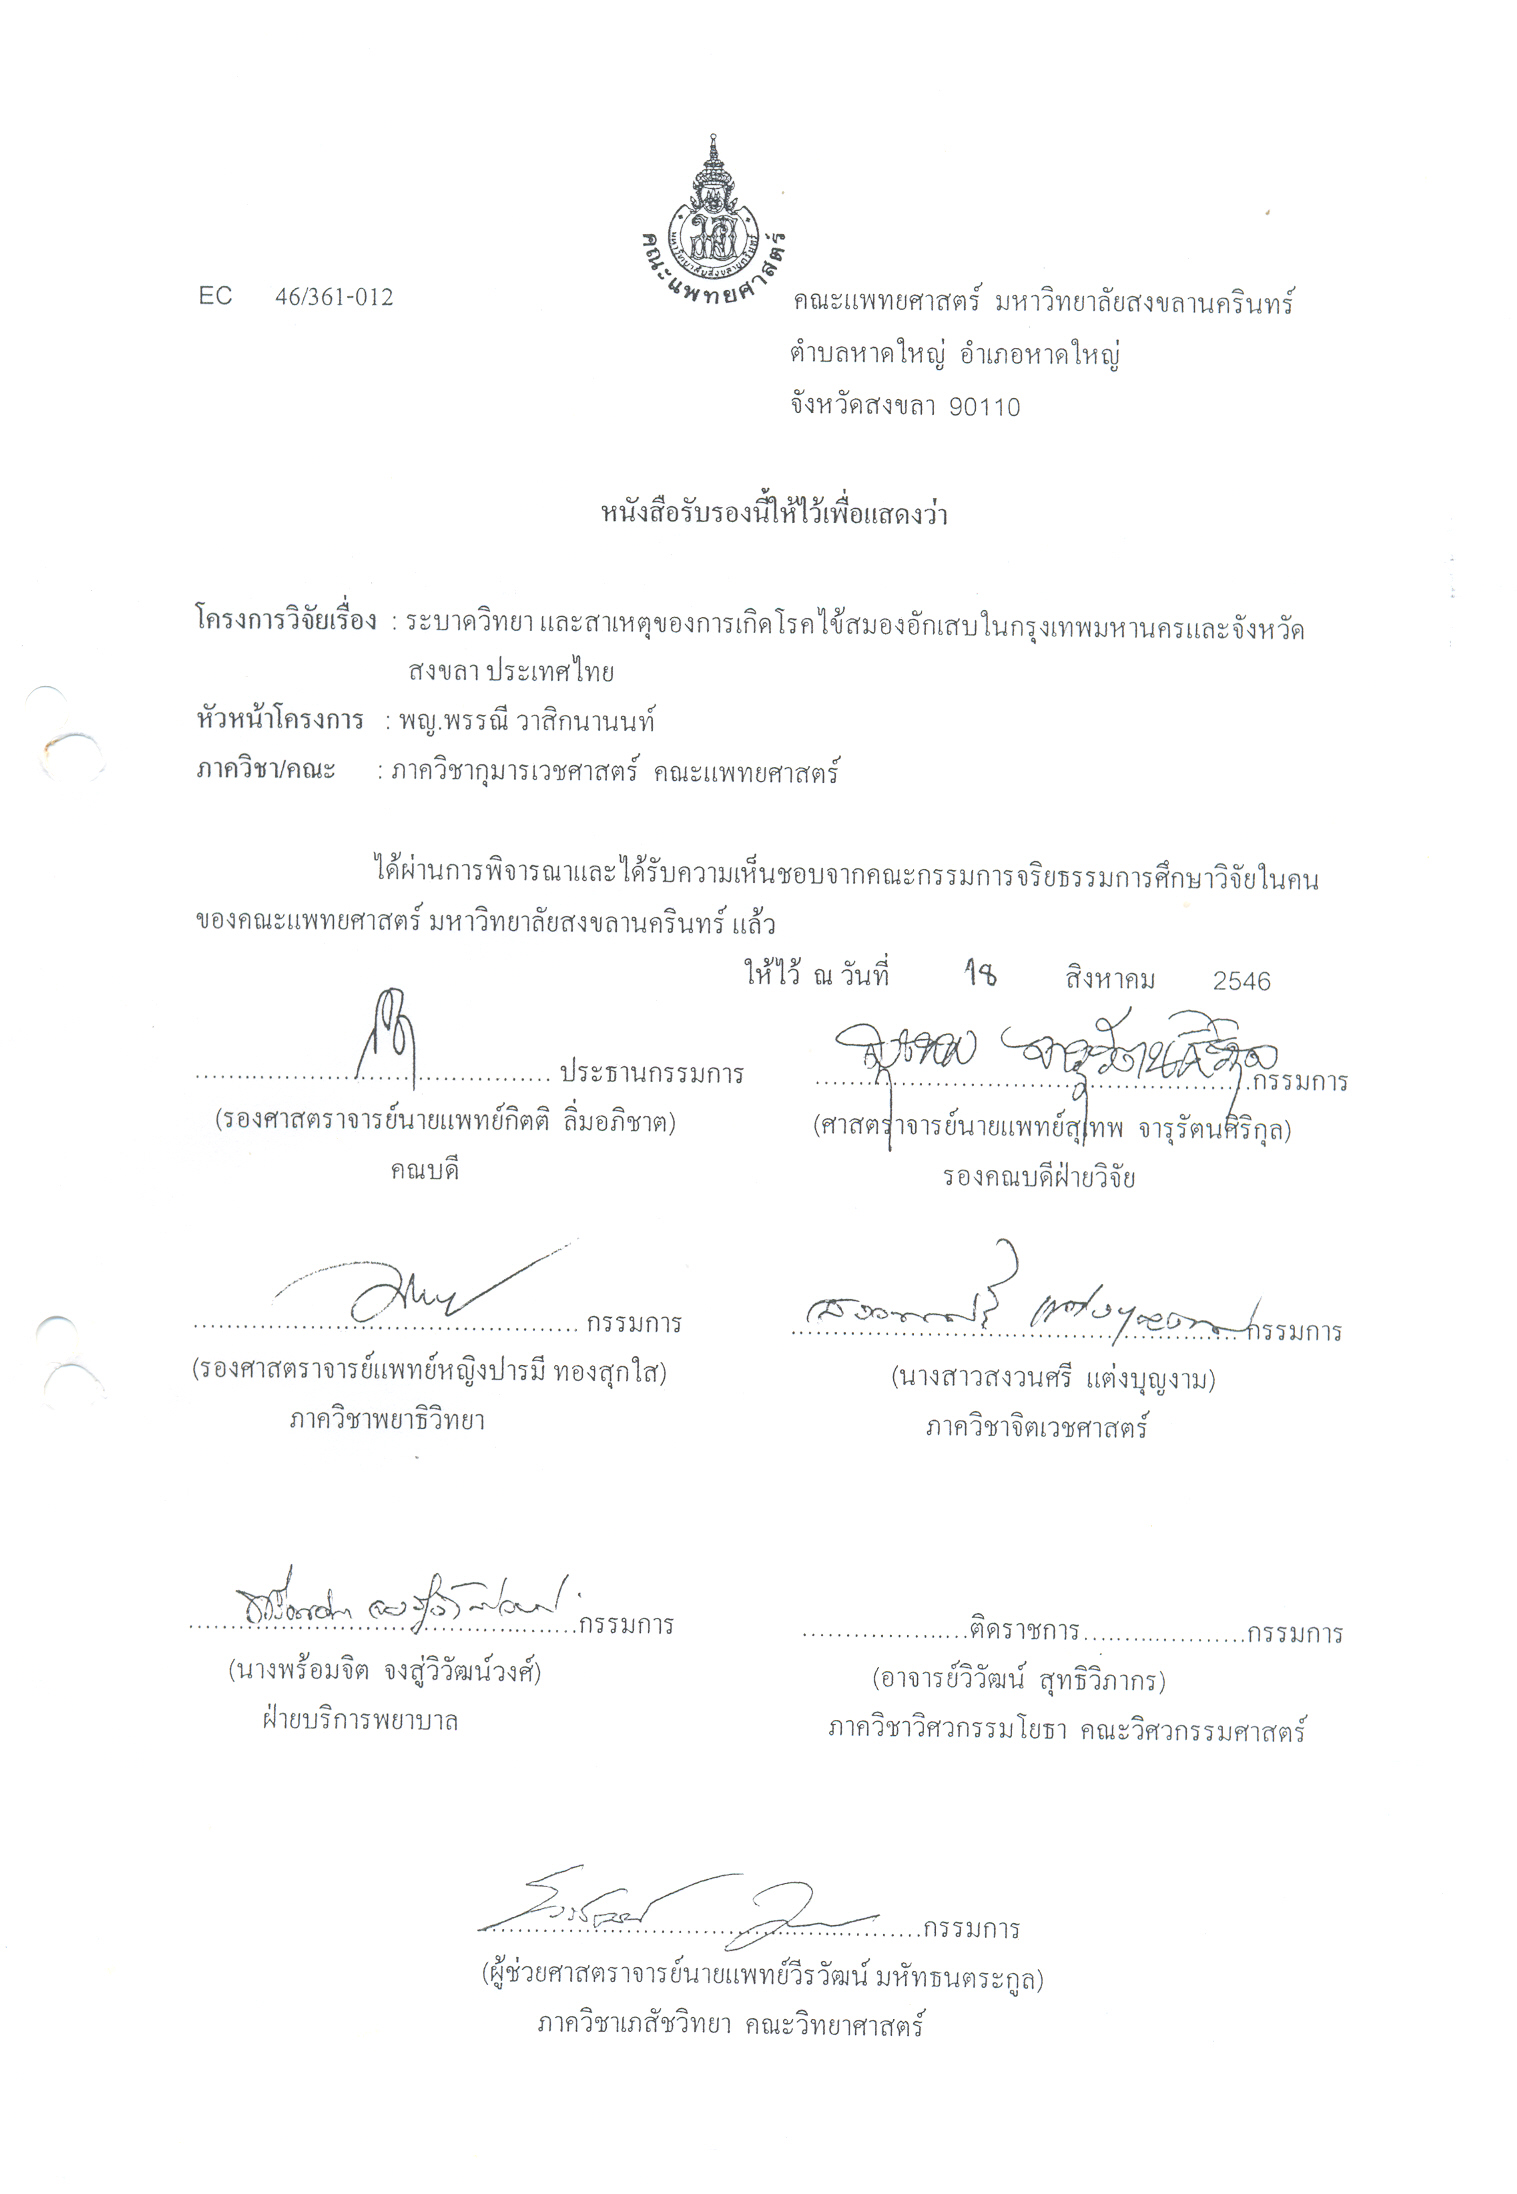 มหาวิทยาลัยสงขลานครินทร์
คณะแพทยศาสตร์
EC 46/361-012
คณะแพทยศาสตร์ มหาวิทยาลัยสงขลานครินทร์
ตำบลหาดใหญ่ อำเภอหาดใหญ่
จังหวัดสงขลา 90110
หนังสือรับรองนี้ให้ไว้เพื่อแสดงว่า
โครงการวิจัยเรื่อง : ระบาดวิทยา และสาเหตุของการเกิดโรคไข้สมองอักเสบในกรุงเทพมหานครและจังหวัด
สงขลา ประเทศไทย
หัวหน้าโครงการ : พญ.พรรณี วาสิกนานนท์
ภาควิชา/คณะ : ภาควิชากุมารเวชศาสตร์ คณะแพทยศาสตร์
ได้ผ่านการพิจารณาและได้รับความเห็นชอบจากคณะกรรมการจริยธรรมการศึกษาวิจัยในคน
ของคณะแพทยศาสตร์ มหาวิทยาลัยสงขลานครินทร์ แล้ว
ให้ไว้ ณ วันที่ 18 สิงหาคม 2546
ประธานกรรมการ
(รองศาสตราจารย์นายแพทย์กิตติ ลิ่มอภิชาต)
คณบดี
สุเทพ จารุรัตนศิริกุล กรรมการ
(ศาสตราจารย์นายแพทย์สุเทพ จารุรัตนศิริกุล)
รองคณบดีฝ่ายวิจัย
กรรมการ
(รองศาสตราจารย์แพทย์หญิงปารมี ทองสุกใส)
ภาควิชาพยาธิวิทยา
สงวนศรี แต่งบุญงาม กรรมการ
(นางสาวสงวนศรี แต่งบุญงาม)
ภาควิชาจิตเวชศาสตร์
กรรมการ
(นางพร้อมจิต จงสู่วิวัฒน์วงศ์)
ฝ่ายบริการพยาบาล
ติดราชการ กรรมการ
(อาจารย์วิวัฒน์ สุทธิวิภากร)
ภาควิชาวิศวกรรมโยธา คณะวิศวกรรมศาสตร์
กรรมการ
(ผู้ช่วยศาสตราจารย์นายแพทย์วีรวัฒน์ มหัทธนตระกูล)
ภาควิชาเภสัชวิทยา คณะวิทยาศาสตร์